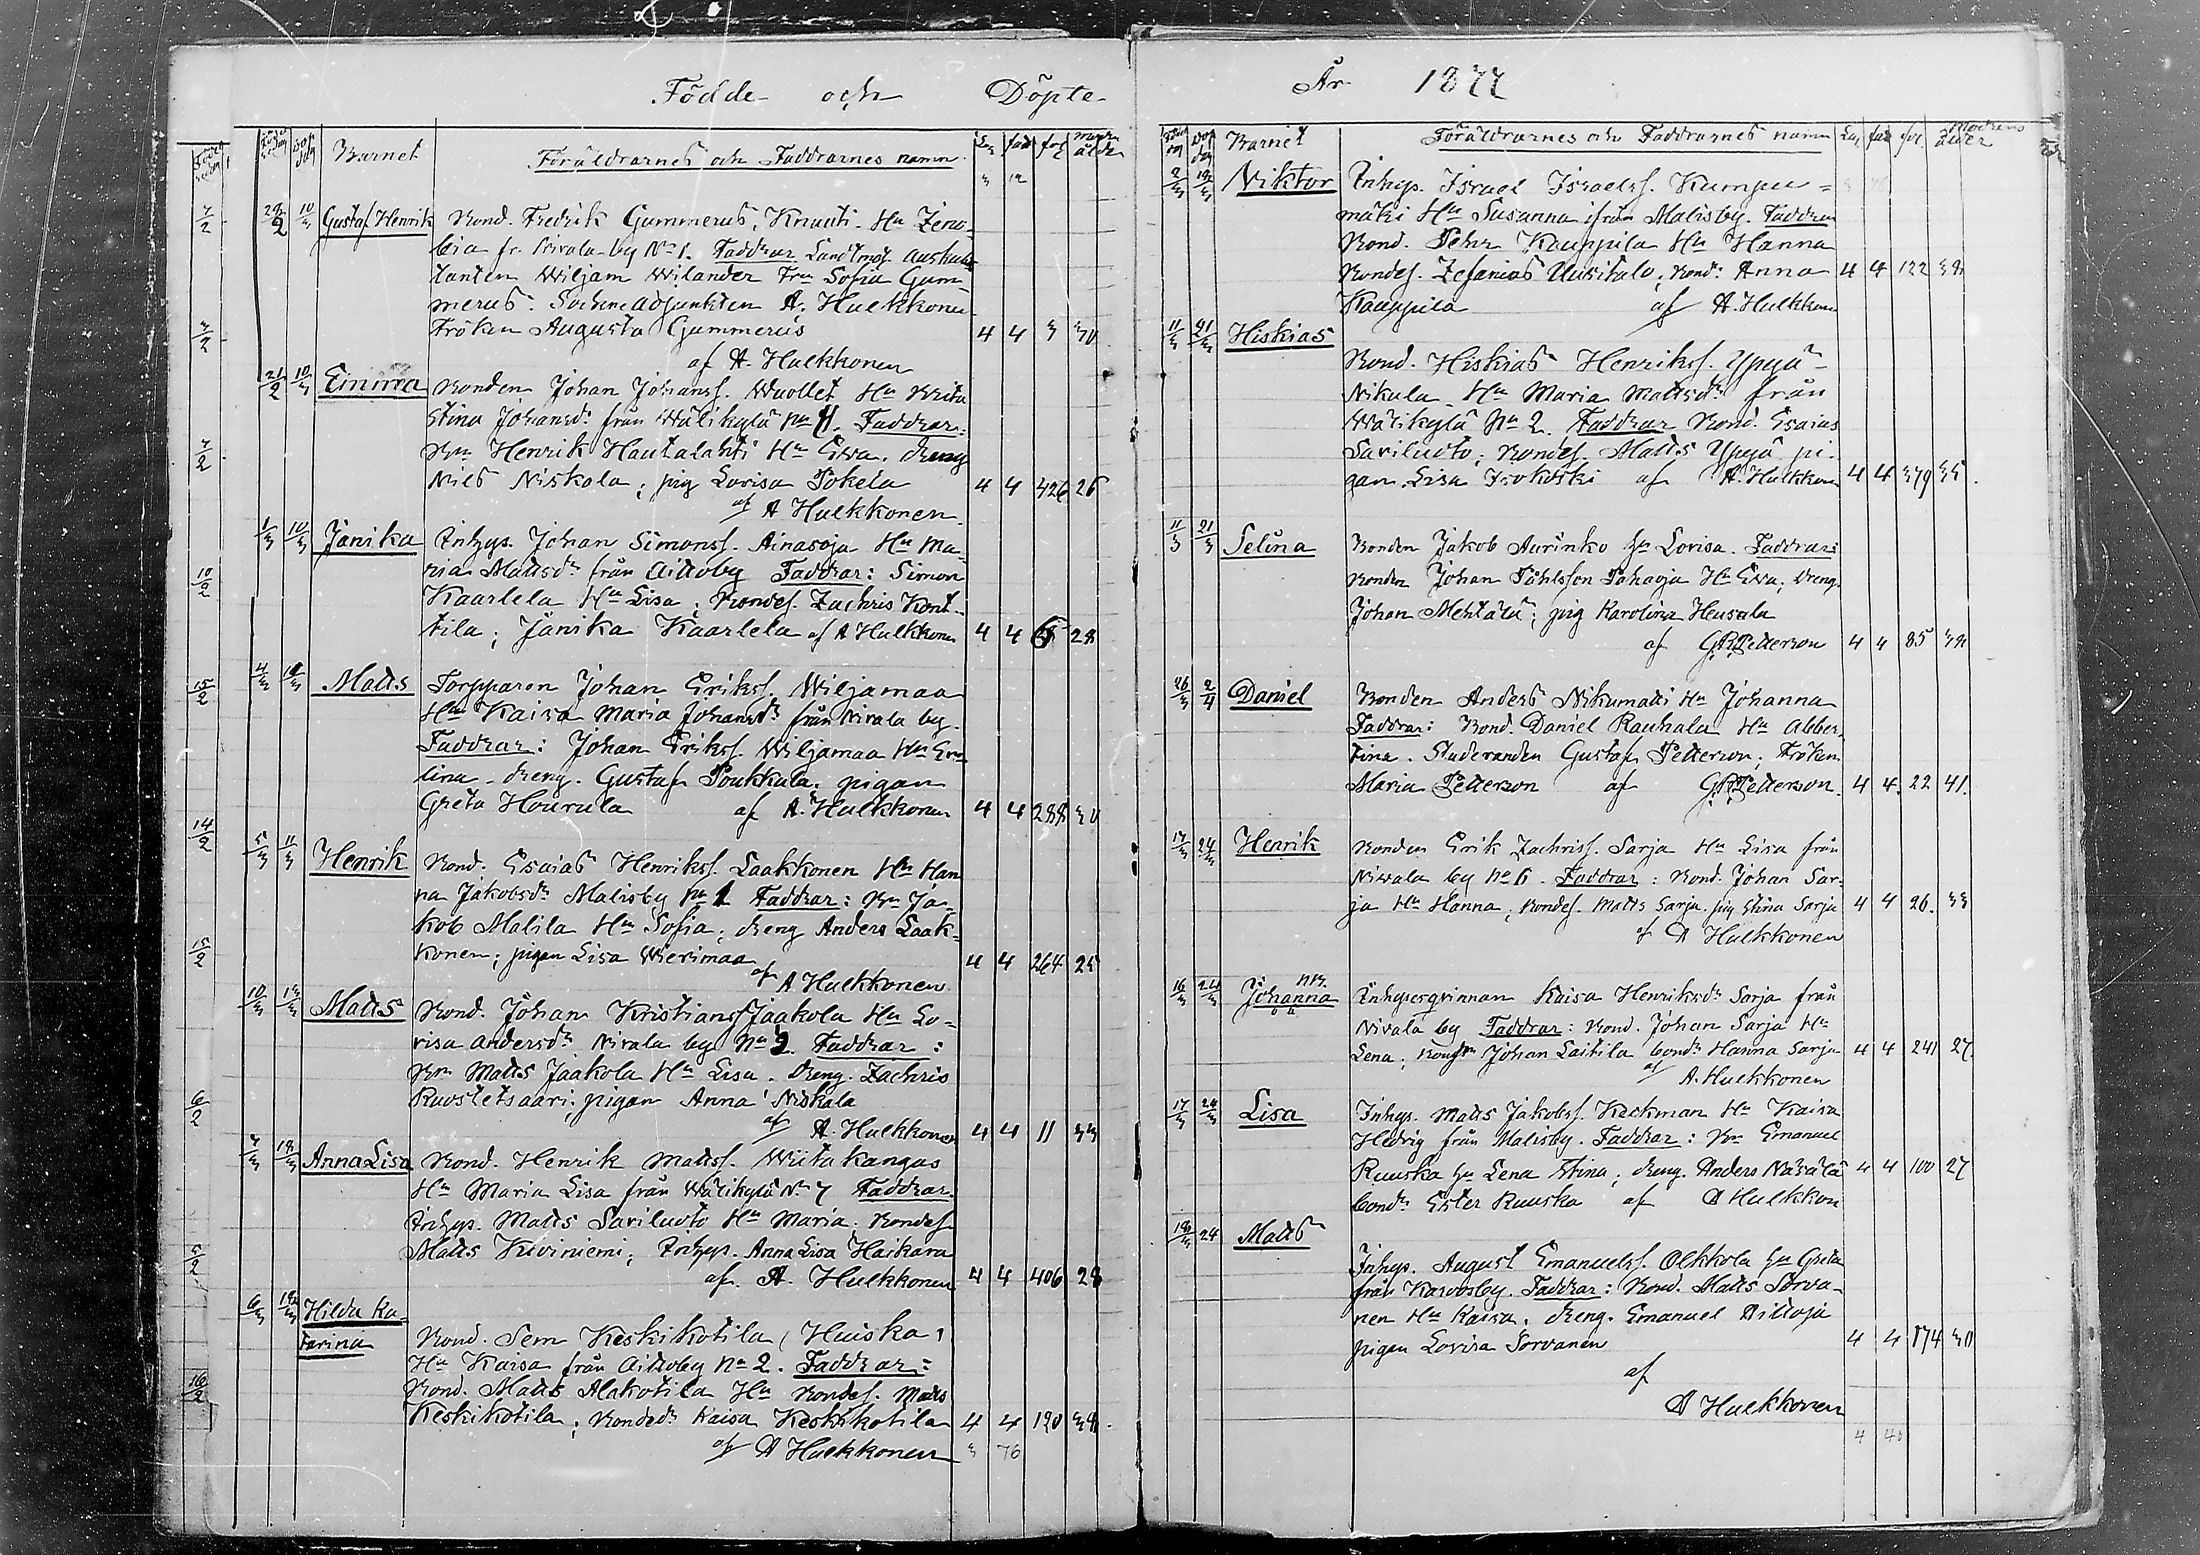 Födde och Döpte
Barnet Föräldrarnes och Faddrarnes namn
Gustaf Henrik Bond. Fredrik Gummerus, Knuuti. Hu Zeno-
bia fr. Nivala by No 1. Faddrar Landtmät. auskul-
tanten Wiljam Wilander Fru Sofia Gum-
merus. Sockne adjunkten A. Hulkkonen
Fröken Augusta Gummerus 4 4 3 30
af A. Hulkkonen
21/2 10/3 Emma Bonden Johan Johanss. Wuollet Hu Brita
Stina Johansdr från Wälikylä No 11. Faddrar:
Bn Henrik Hautalahti Hu Ewa. dreng
Nils Niskola; pig Lovisa Pokela 4 4 426 26
af A Hulkkonen
1/3 10/3 Janika Inhys. Johan Simonss. Ainasoja Hu Ma-
ria Mattsdr från Aittoby Faddrar: Simon
Kaarlela Hu Lisa; Bondes. Zachris Kont-
tila; Janika Kaarlela af A Hulkkonen 4 4 65 28
Matts Torpparen Johan Erikss. Wiljamaa
Hu Kaisa Maria Johansdr från Nivala by.
Faddrar: Johan Erikss. Wiljamaa Hu
lina. dreng. Gustaf Poukkula. pigan
Greta Hourula af A. Hulkkonen 4 4 288 30
5/3 11/3 Henrik Bond. Esaias Henrikss. Laakkonen Hu Han
na Jakobsdr Malisby No 1 Faddrar: Bn Ja-
kob Malila Hu Sofia; dreng Anders Laak-
konen; pigan Lisa Wierimaa 4 4 264 25
af A Hulkkonen
Matts Bond. Johan Kristianss Jaakola Hu Lo-
visa Andersdr Nivala by No 2. Faddrar:
Bn Matts Jaakola Hu Lisa. dreng. Zachris
Ruostetsaari; pigan Anna Niskala
af A. Hulkkonen 4 4 11 33
Anna Lisa Bond. Henrik Matss. Wiitakangas
Hu Maria Lisa från Wälikylä No 7 Faddrar.
Inhys. Matts Sariluoto Hu Maria. Bondes
Matts Kiviniemi; Inhys. Anna Lisa Haikara
af A. Hulkkonen 4 4 406 28
Hilda Ka-
tarina Bond. Sem Keskikotila (Huiska)
Hu Kaisa från Aittoby No 2. Faddrar:
Bond. Matts Alakotila Hu Bondes. Matts
Keskikotila; Bondedr Kaisa Keskikotila 4 4 120 38
af A Hulkkonen 3 76
År 1877
Barnet Föräldrarnes och Faddrarnes namn Moderns ålder
Viktor Inhys. Israel Israelss. Kumpu-
mäki Hu Susanna ifrån Malisby. Faddrar
Bond. Pehr Kauppila Hu Hanna
Bondes. Zefanias Uusitalo; Bond: Anna 4 4 122 38
Kauppila af A. Hulkkonen
11/3 21/3 Hiskias
Bond. Hiskias Henrikss. Yppyä-
Nikula Hu Maria Mattsdr från
Wälikylä No 2. Faddrar Bond. Esaias
Sariluoto; Bondes. Matts Yppyä pi-
gan Lisa Isokoski af A. Hulkkonen 4 4 379 35
11/3 21/3 Selina Bonden Jakob Aurinko Hu Lovisa. Faddrar:
Bonden Johan Påhlsson Pahaoja Hu Ewa; Dreng.
Johan Mehtälä; pig Karolina Heusala
af G. R. Petterson 4 4 85 38
26/3 2/4 Daniel Bonden Anders Nikumatti Hu Johanna
Faddrar: Bond. Daniel Rauhala Hu Alber-
tina. Studeranden Gustaf Petterson; Fröken
Maria Petterson af G. R. Petterson. 4 4 22 41.
24/3 Henrik Bonden Erik Zachriss. Sarja Hu Lisa från
Nivala by No 6. Faddrar: Bond. Johan Sar-
ja Hu Hanna; Bondes. Matts Sarja. pig Stina Sarja 4 4 26. 33
af A Hulkkonen
16/3 24/3 Johanna Inhysesqvinnan Kaisa Henriksdr Sarja från
Nivala by Faddrar: Bond. Johan Sarja Hu
Lena; Johan Laitila bondr Hanna Sarja 4 4 241 27.
af A. Hulkkonen
17/3 24/3 Lisa Inhys. Matts Jakobss. Keckman Hu Kaisa
Hedvig från Malisby. Faddrar: Bn Emanuel
Ruuska Hu Lena Stina; dreng. Anders Näsälä 4 4 100 27
bondr Ester Ruuska af A Hulkkon
24 Matts
Inhys. August Emanuelss. Olkkola Hu Greta
från Karvosby. Faddrar: Bond. Matts Sorva-
nen Hu Kaisa. dreng. Emanuel Aittoja
pigan Lovisa Sorvanen 4 4 174 30
af
A Hulkkonen
4 40